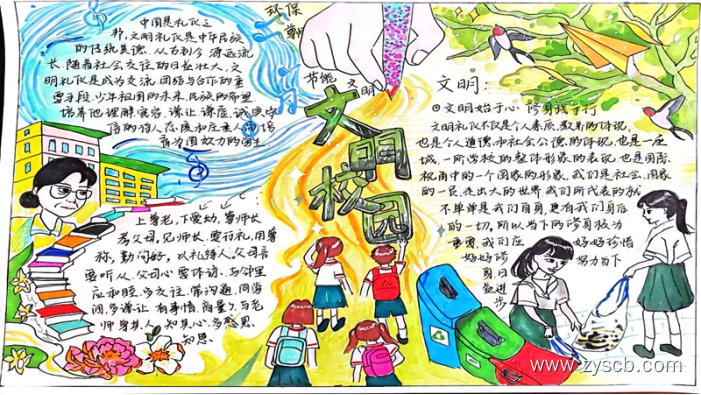 中国是礼仪之
邦,文明礼仪是中华民族
的传统美德,从古到今 源远流
长,随着社会交往的日益壮大,文
明礼仪是成为交流 团结与合作的重
要手段,少年祖国的未来,民族的希望
培养他理解 宽容 谦让 诚实守
信的待人态度和庄重
环保
节能
文明
文明校园
文明:
文明始于心 修身践于行
文明礼仪不仅是个人素质、教养的体现,
也是个人道德和社会公德的体现,也是一座
城,一所学校的整体形象的表现,也是国际
视角中的一个国家的形象,我们是社会、国家
的一员,走出大的世界 我们所代表的就
不单单是我们自身,更有我们身后
的一切,所以当下的修身极为
重要,我们应 好好珍惜
好好修 努力当下
身,日
益进
步
上尊老,下爱幼,尊师长
孝父母,见师长,要行礼,用尊
称,勤问好,以礼待人,父母言
要听从,父母心 要体谅,与邻里
应和睦,多交往,常沟通,同学
间,多谦让 有事情,商量了,与老
师
知恩
www.zyscb.com